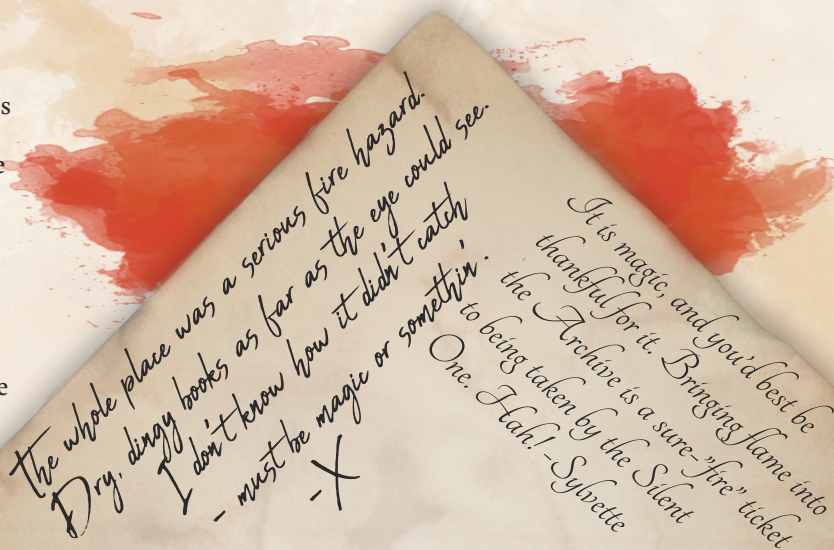 s
e
e
The whole place was a serious fire hazard.
Dry, dingy books as far as the eye could see.
I don't know how it didn't catch
- must be magic or somethin'.
-X
It is magic, and you'd best be
thankful for it. Bringing flame into
the Archive is a sure-"fire" ticket
to being taken by the Silent
One. Hah! -Sylvette